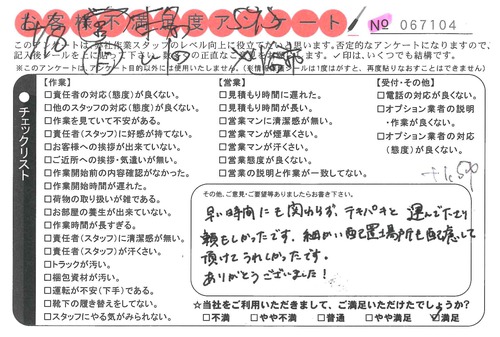 お客様不満足度アンケート
№ 067104
このアンケートは、弊社作業スタッフのレベル向上に役立てたいと思います。否定的なアンケートになりますので、
記入後シールを上に貼って下さい。数多くの正直なご意見をお待ちしております。✓印は、いくつでも結構です。
※このアンケートは、アンケート目的以外には使用いたしません。(※情報保護シールは1度はがすと、再度貼りなおすことはできません)
●チェックリスト
【作業】
□責任者の対応(態度)が良くない。
□他のスタッフの対応(態度)が良くない。
□作業を見ていて不安がある。
□責任者(スタッフ)に好感が持てない。
□お客様への挨拶が出来ていない。
□ご近所への挨拶・気遣いが無い。
□作業開始前の内容確認がなかった。
□作業開始時間が遅れた。
□荷物の取り扱いが雑である。
□お部屋の養生が出来ていない。
□作業時間が長すぎる。
□責任者(スタッフ)に清潔感が無い。
□責任者(スタッフ)が汗くさい。
□トラックが汚い。
□梱包資材が汚い。
□運転が不安(下手)である。
□靴下の履き替えをしてない。
□スタッフにやる気がみられない。
【営業】
□見積もり時間に遅れた。
□見積もり時間が長い。
□営業マンに清潔感が無い。
□営業マンが煙草くさい。
□営業マンが汗くさい。
□営業態度が良くない。
□営業の説明と作業が一致してない。
【受付・その他】
□電話の対応が良くない。
□オプション業者の説明
・作業が良くない。
□オプション業者の対応
(態度)が良くない。
その他、ご意見・ご要望等ありましたらお書き下さい。
早い時間にも関わらず、テキパキと運んで下さり
頼もしかったです。細かい配置場所も配慮して
頂けてうれしかったです。
ありがとうございました!
☆当社をご利用いただきまして、ご満足いただけたでしょうか?
□不満 □やや不満 □普通 □やや満足 ☑満足